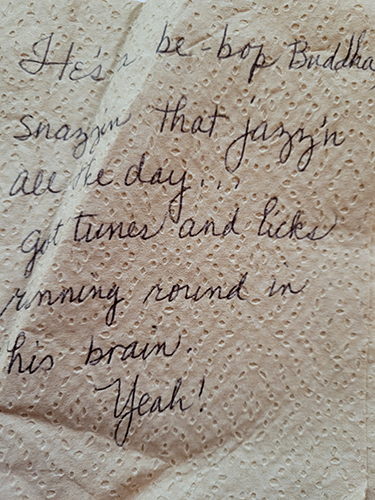 He's a be-bop Buddha
snazzin that jazz'n
all the day...
got tunes and licks
running round in
his brain.
Yeah!